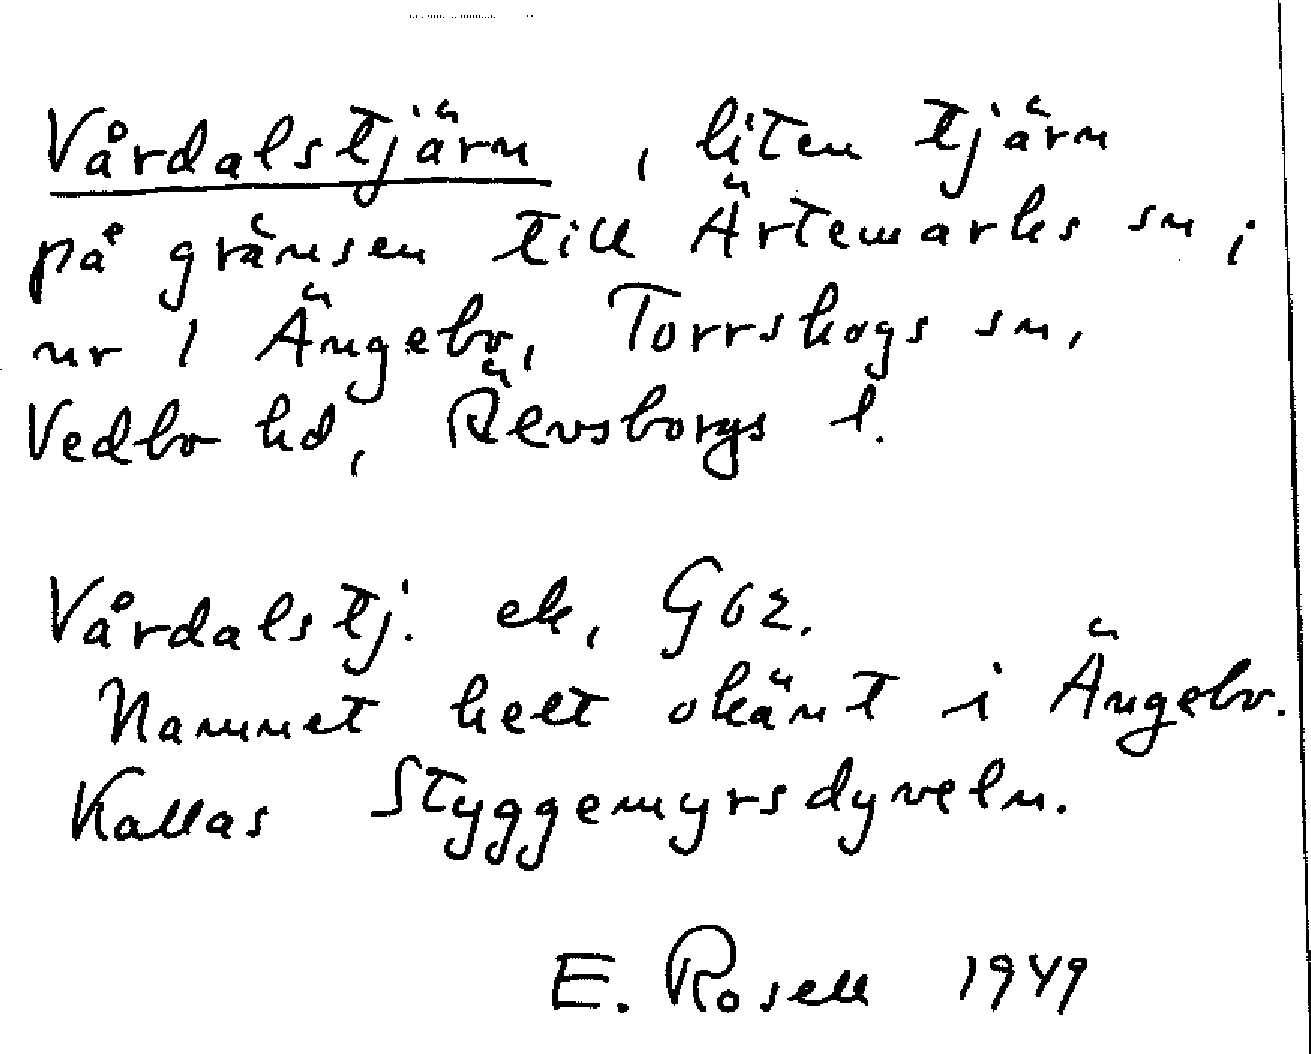 Vårdalstjärn, liten tjärn
på gränsen till Ärtemarks sn;
nr 1 Ängebo, Torrskogs sn,
Vedbo hd, Älvsborgs l.
Vårdalstj. ek, G62.
Namnet helt okänt i Ängebo.
Kallas Styggemyrsdyveln.
E. Rosell 1949